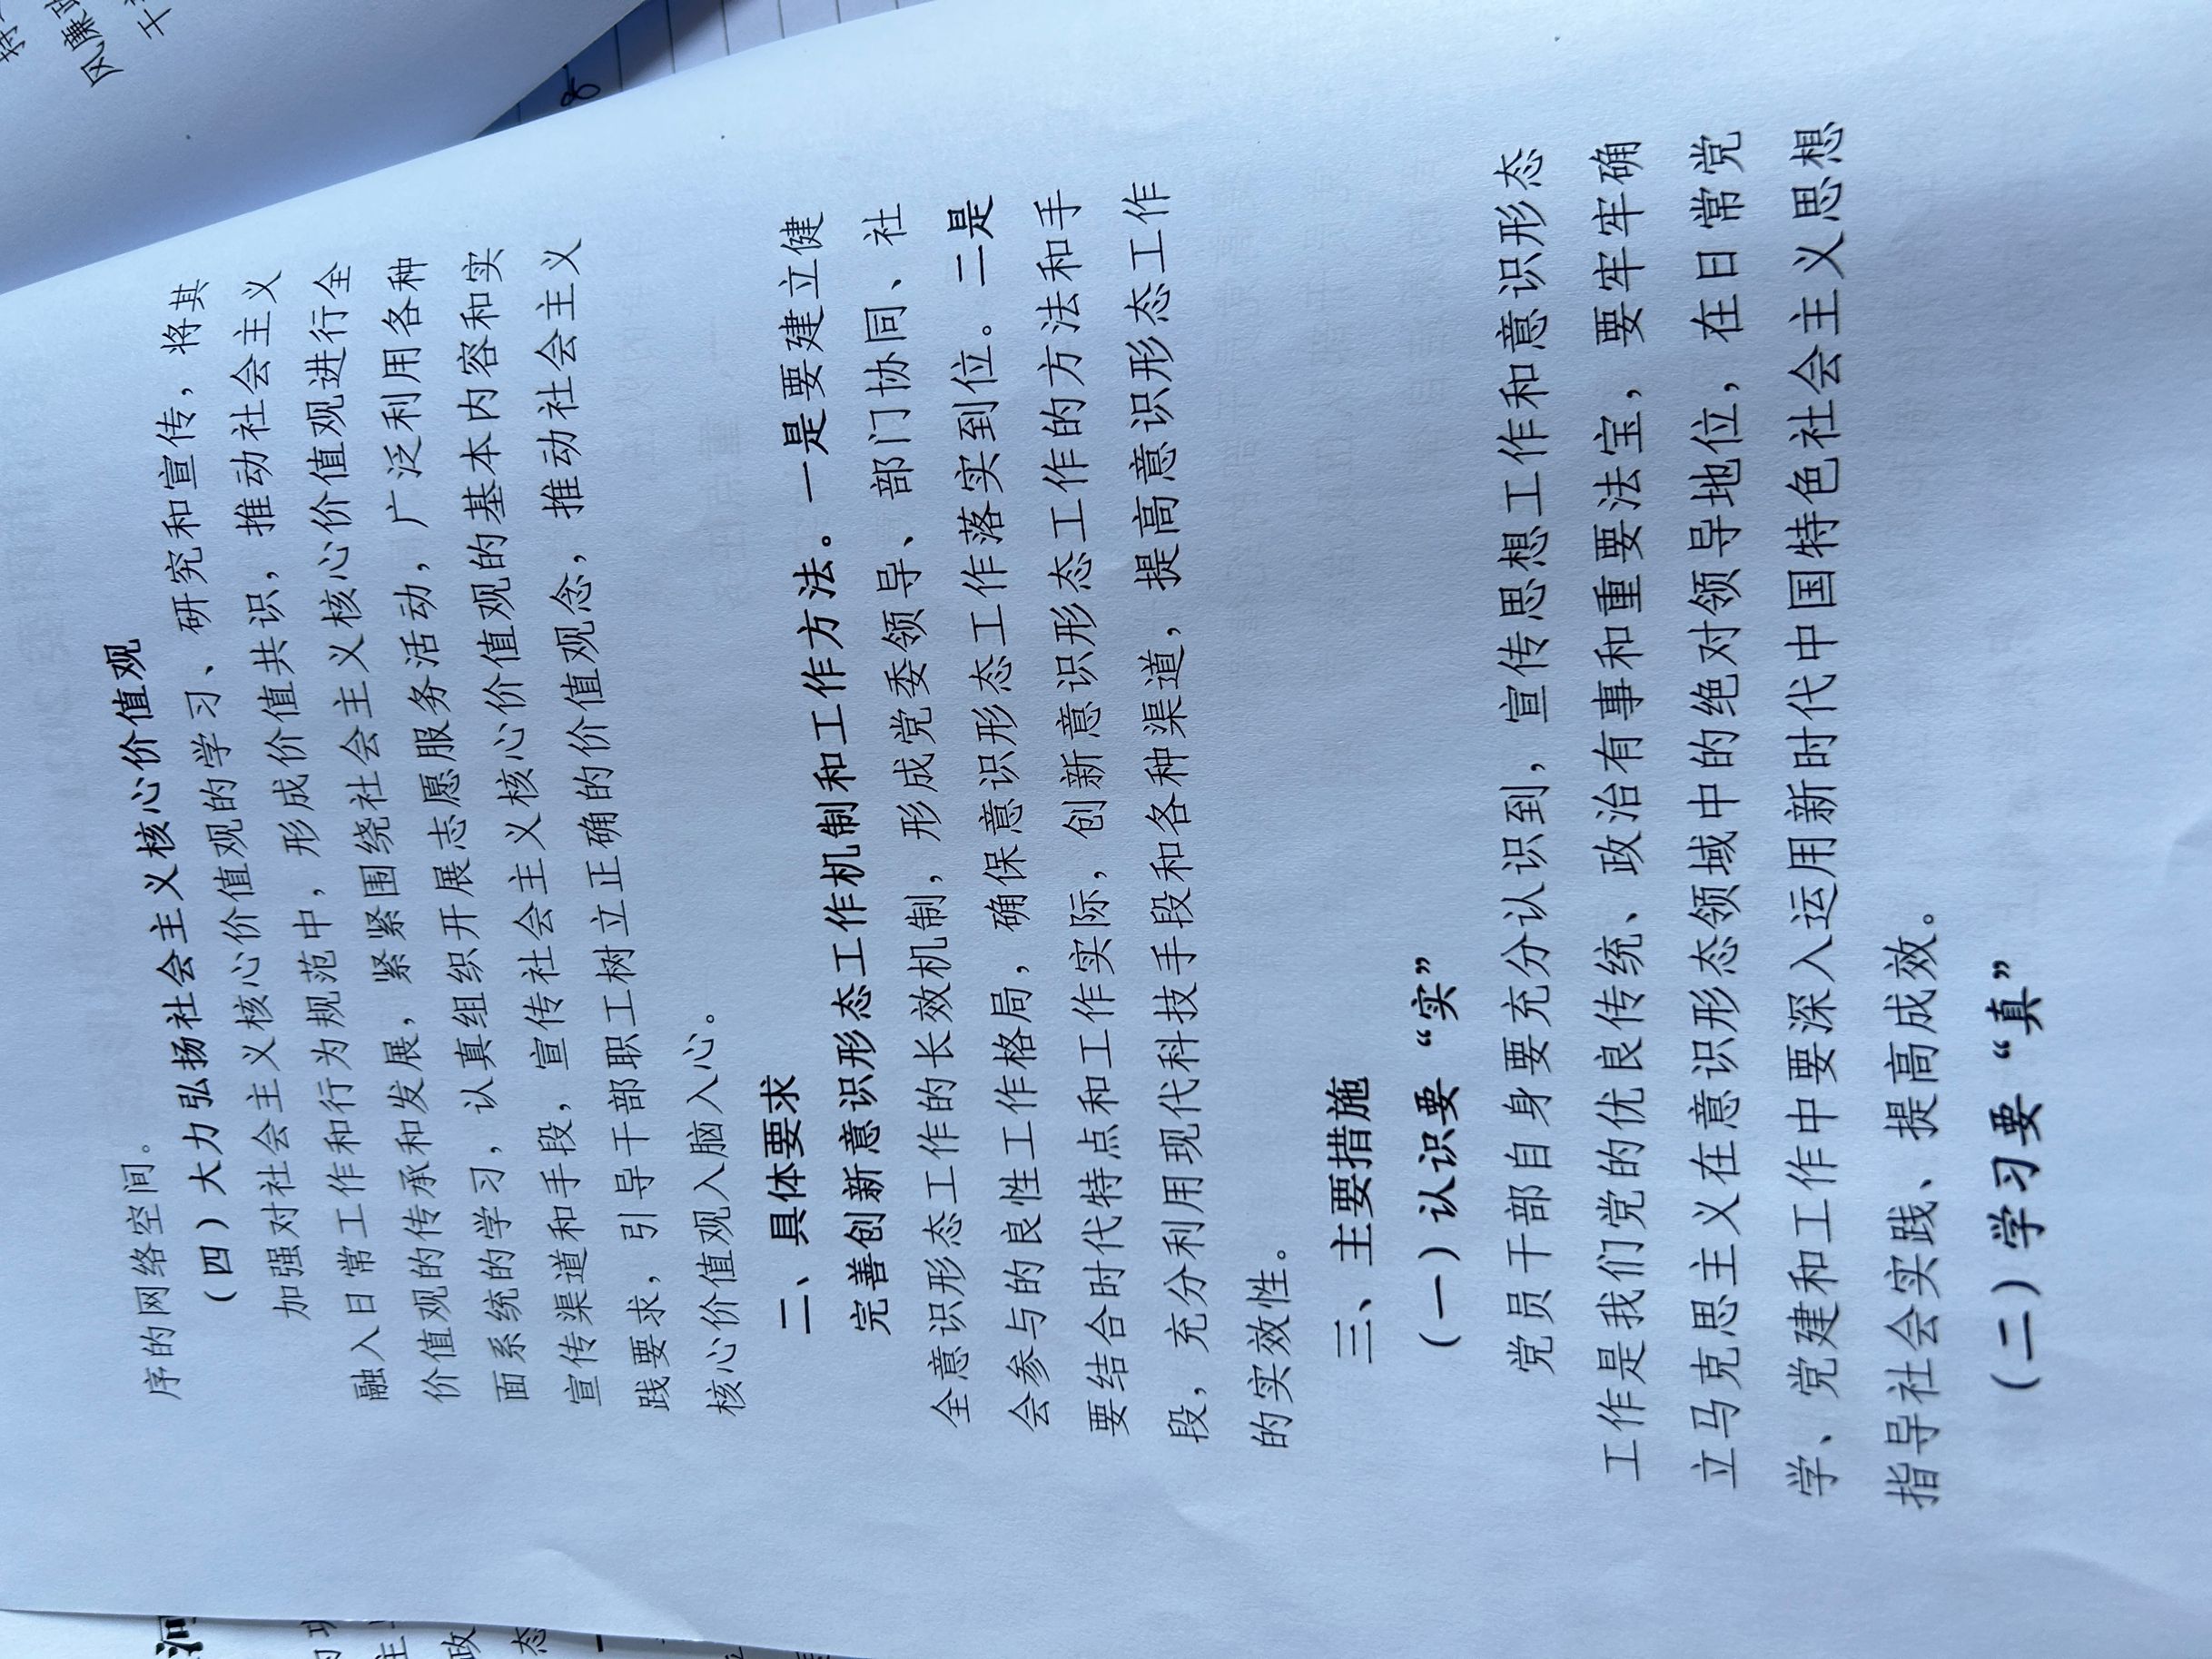 序的网络空间。
（四）大力弘扬社会主义核心价值观
加强对社会主义核心价值观的学习、研究和宣传，将其
融入日常工作和行为规范中，形成价值共识，推动社会主义
价值观的传承和发展，紧紧围绕社会主义核心价值观进行全
面系统的学习，认真组织开展志愿服务活动，广泛利用各种
宣传渠道和手段，宣传社会主义核心价值观的基本内容和实
践要求，引导干部职工树立正确的价值观念，推动社会主义
核心价值观入脑入心。
二、具体要求
完善创新意识形态工作机制和工作方法。一是要建立健
全意识形态工作的长效机制，形成党委领导、部门协同、社
会参与的良性工作格局，确保意识形态工作落实到位。二是
要结合时代特点和工作实际，创新意识形态工作的方法和手
段，充分利用现代科技手段和各种渠道，提高意识形态工作
的实效性。
三、主要措施
（一）认识要“实”
党员干部自身要充分认识到，宣传思想工作和意识形态
工作是我们党的优良传统、政治有事和重要法宝，要牢牢确
立马克思主义在意识形态领域中的绝对领导地位，在日常党
学、党建和工作中要深入运用新时代中国特色社会主义思想
指导社会实践、提高成效。
（二）学习要“真”